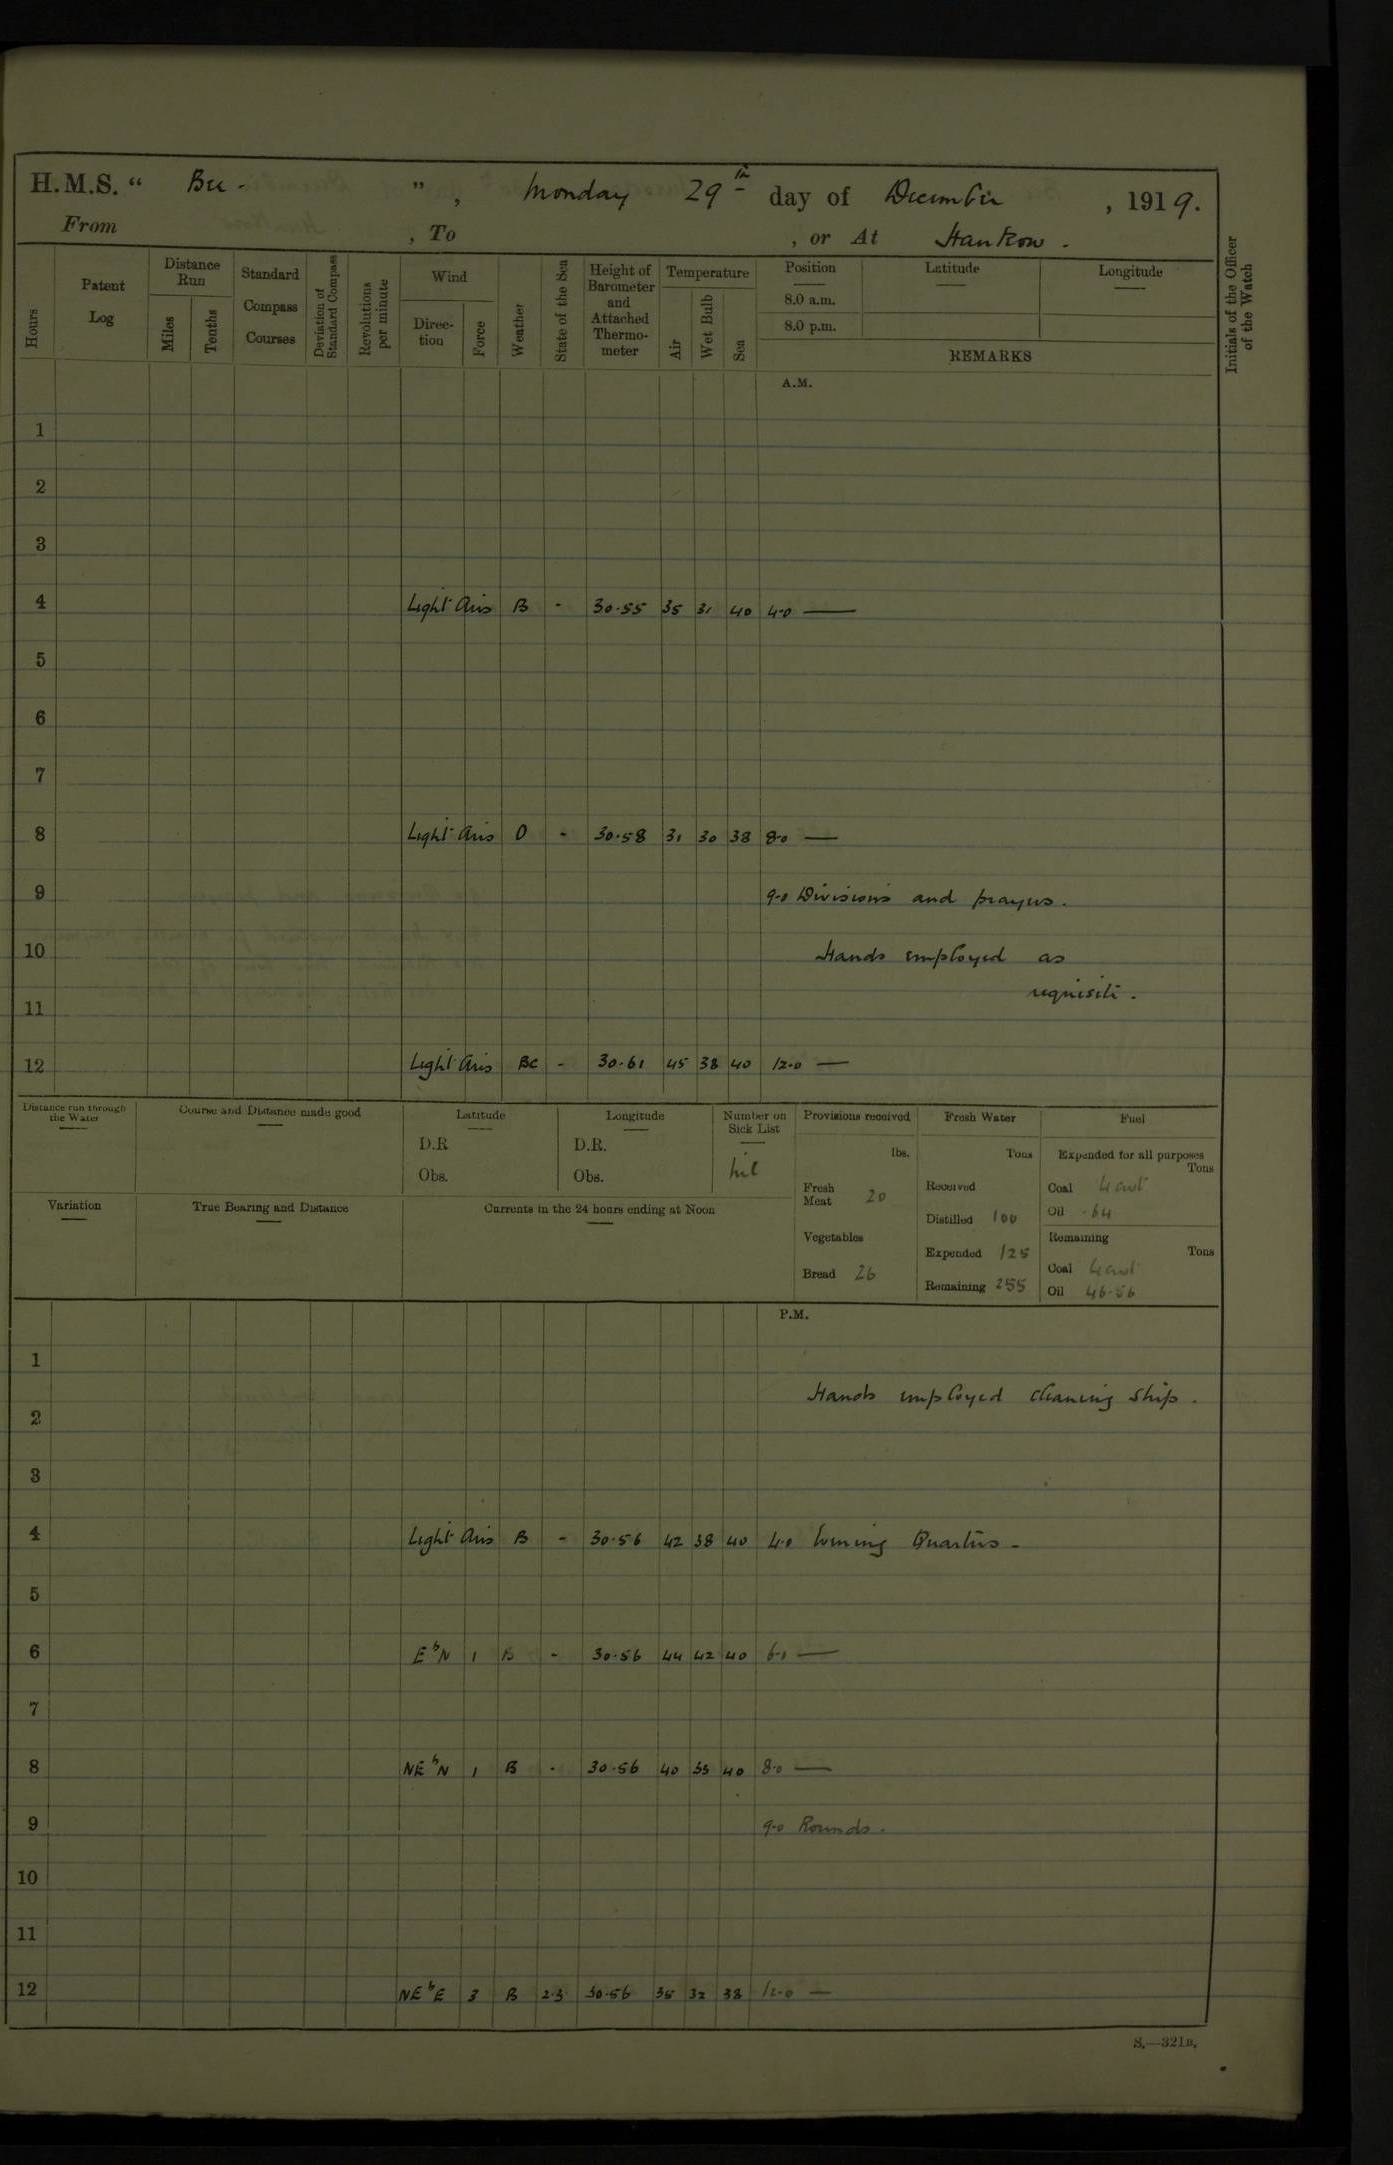 H.M.S. " Bee. ", Monday 29th day of December, 1919.
From , To , or At Hankow.
Hours
Patent Log
Distance Run
Miles
Tenths
Standard Compass Courses
Deviation of Standard Compass
Revolutions per minute
Wind
Direction
Force
Weather
State of the Sea
Height of Barometer and Attached Thermometer
Temperature
Air
Wet Bulb
Sea
Position
Latitude
Longitude
8.0 a.m.
8.0 p.m.
REMARKS
Initials of the Officer of the Watch
A.M.
1
2
3
4 Light Airs B - 30.55 35 31 40 4.0 —
5
6
7
8 Light Airs O - 30.58 31 30 38 8.0 —
9 9.0 Divisions and prayers.
10 Hands employed as
requisite.
11
12 Light Airs BC - 30.61 45 38 40 12.0 —
Distance run through the Water
Course and Distance made good
Latitude
D.R
Obs.
Longitude
D.R.
Obs.
Number on Sick List
Nil
Provisions received
lbs.
Fresh Meat 20
Vegetables
Bread 26
Fresh Water
Tons
Received
Distilled 100
Expended 125
Remaining 255
Fuel
Expended for all purposes
Tons
Coal 4 cwt
Oil .64
Remaining
Tons
Coal 4 cwt
Oil 46.56
Variation
True Bearing and Distance
Currents in the 24 hours ending at Noon
P.M.
1
Hands employed cleaning ship.
2
3
4 Light Airs B - 30.56 42 38 40 4.0 Evening Quarters -
5
6 EbN 1 B - 30.56 44 42 40 6.0 —
7
8 NEbN 1 B - 30.56 40 35 40 8.0 —
9 9.0 Rounds.
10
11
12 NEbE 3 B 2.3 30.56 35 32 38 12.0 —
S.—321B.